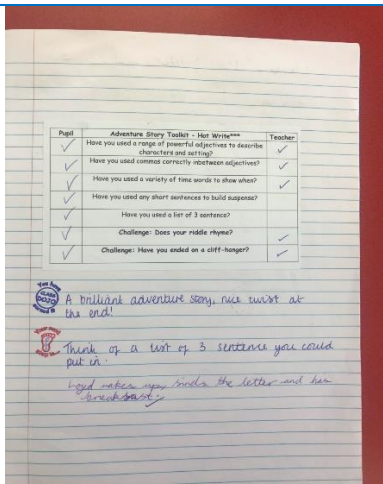 Pupil Adventure Story Toolkit - Hot Write*** Teacher
Have you used a range of powerful adjectives to describe
characters and setting?
Have you used commas correctly inbetween adjectives?
Have you used a variety of time words to show when?
Have you used any short sentences to build suspense?
Have you used a list of 3 sentence?
Challenge: Does your riddle rhyme?
Challenge: Have you ended on a cliff-hanger?
You have
CLASS
DOJO
A brilliant adventure story, nice twist at
the end!
Your next
step is...
Think of a list of 3 sentence you could
put in.
Loyd wakes up, finds the letter and has
breakfast.